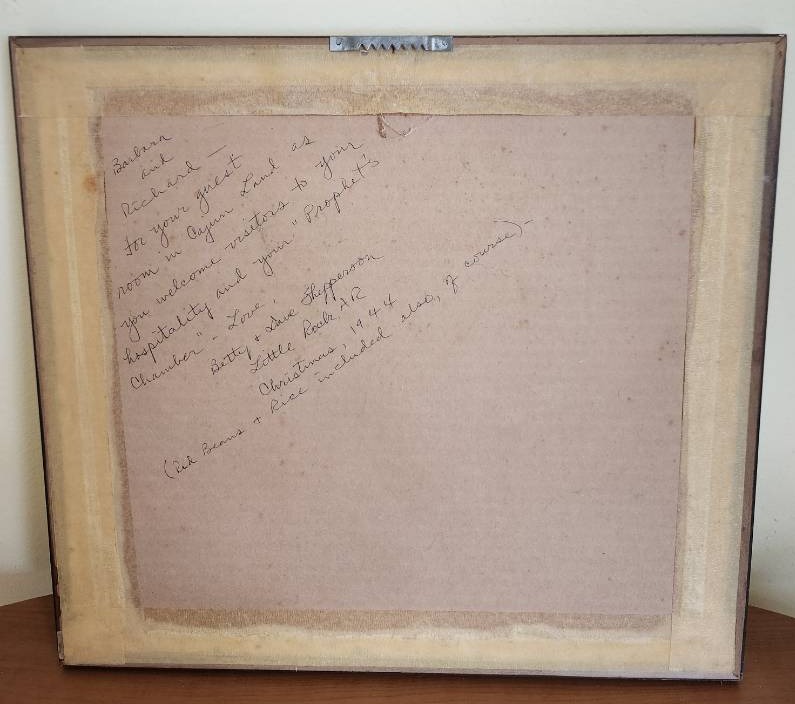 Barbara
and
Richard —
For your guest
room in Cajun Land as
you welcome visitors to your
hospitality and your "Prophet's
Chamber" - Love,
Betty & Dave Shepperson
Little Rock, AR
Christmas, 1944
(Red Beans & Rice included also, of course) -